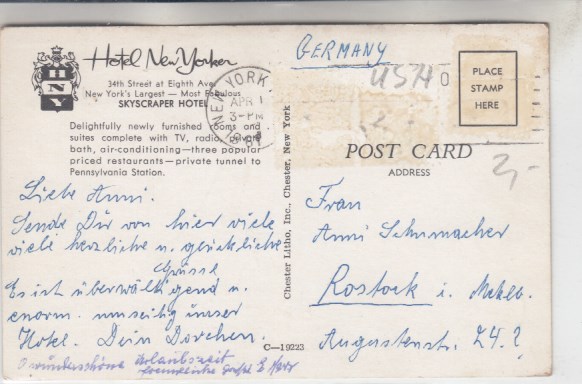 HNY
Hotel New Yorker
34th Street at Eighth Ave
New York's Largest — Most Fabulous
SKYSCRAPER HOTEL
Delightfully newly furnished rooms and
suites complete with TV, radio, private
bath, air-conditioning—three popular
priced restaurants—private tunnel to
Pennsylvania Station.
NEW YORK
APR 1
3-PM
GERMANY
USA
PLACE
STAMP
HERE
POST CARD
ADDRESS
2,-
Liebe Anni.
Sende Dir von hier viele
viele herzliche u. glückliche
Grüsse
Es ist überwältigend u.
enorm. unser
Hotel. Dein Dorchen.
O wunderschöne Urlaubszeit
Chester Litho, Inc., Chester, New York
C—19223
Frau
Anni Schumacher
Rostock i. Meklb.
Augustenstr. 24.?